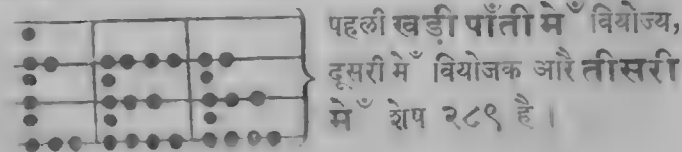 पहली खड़ी पाँती मेँ वियोज्य,
दूसरी मेँ वियोजक आरै तीसरी
मेँ शेष २८९ है।